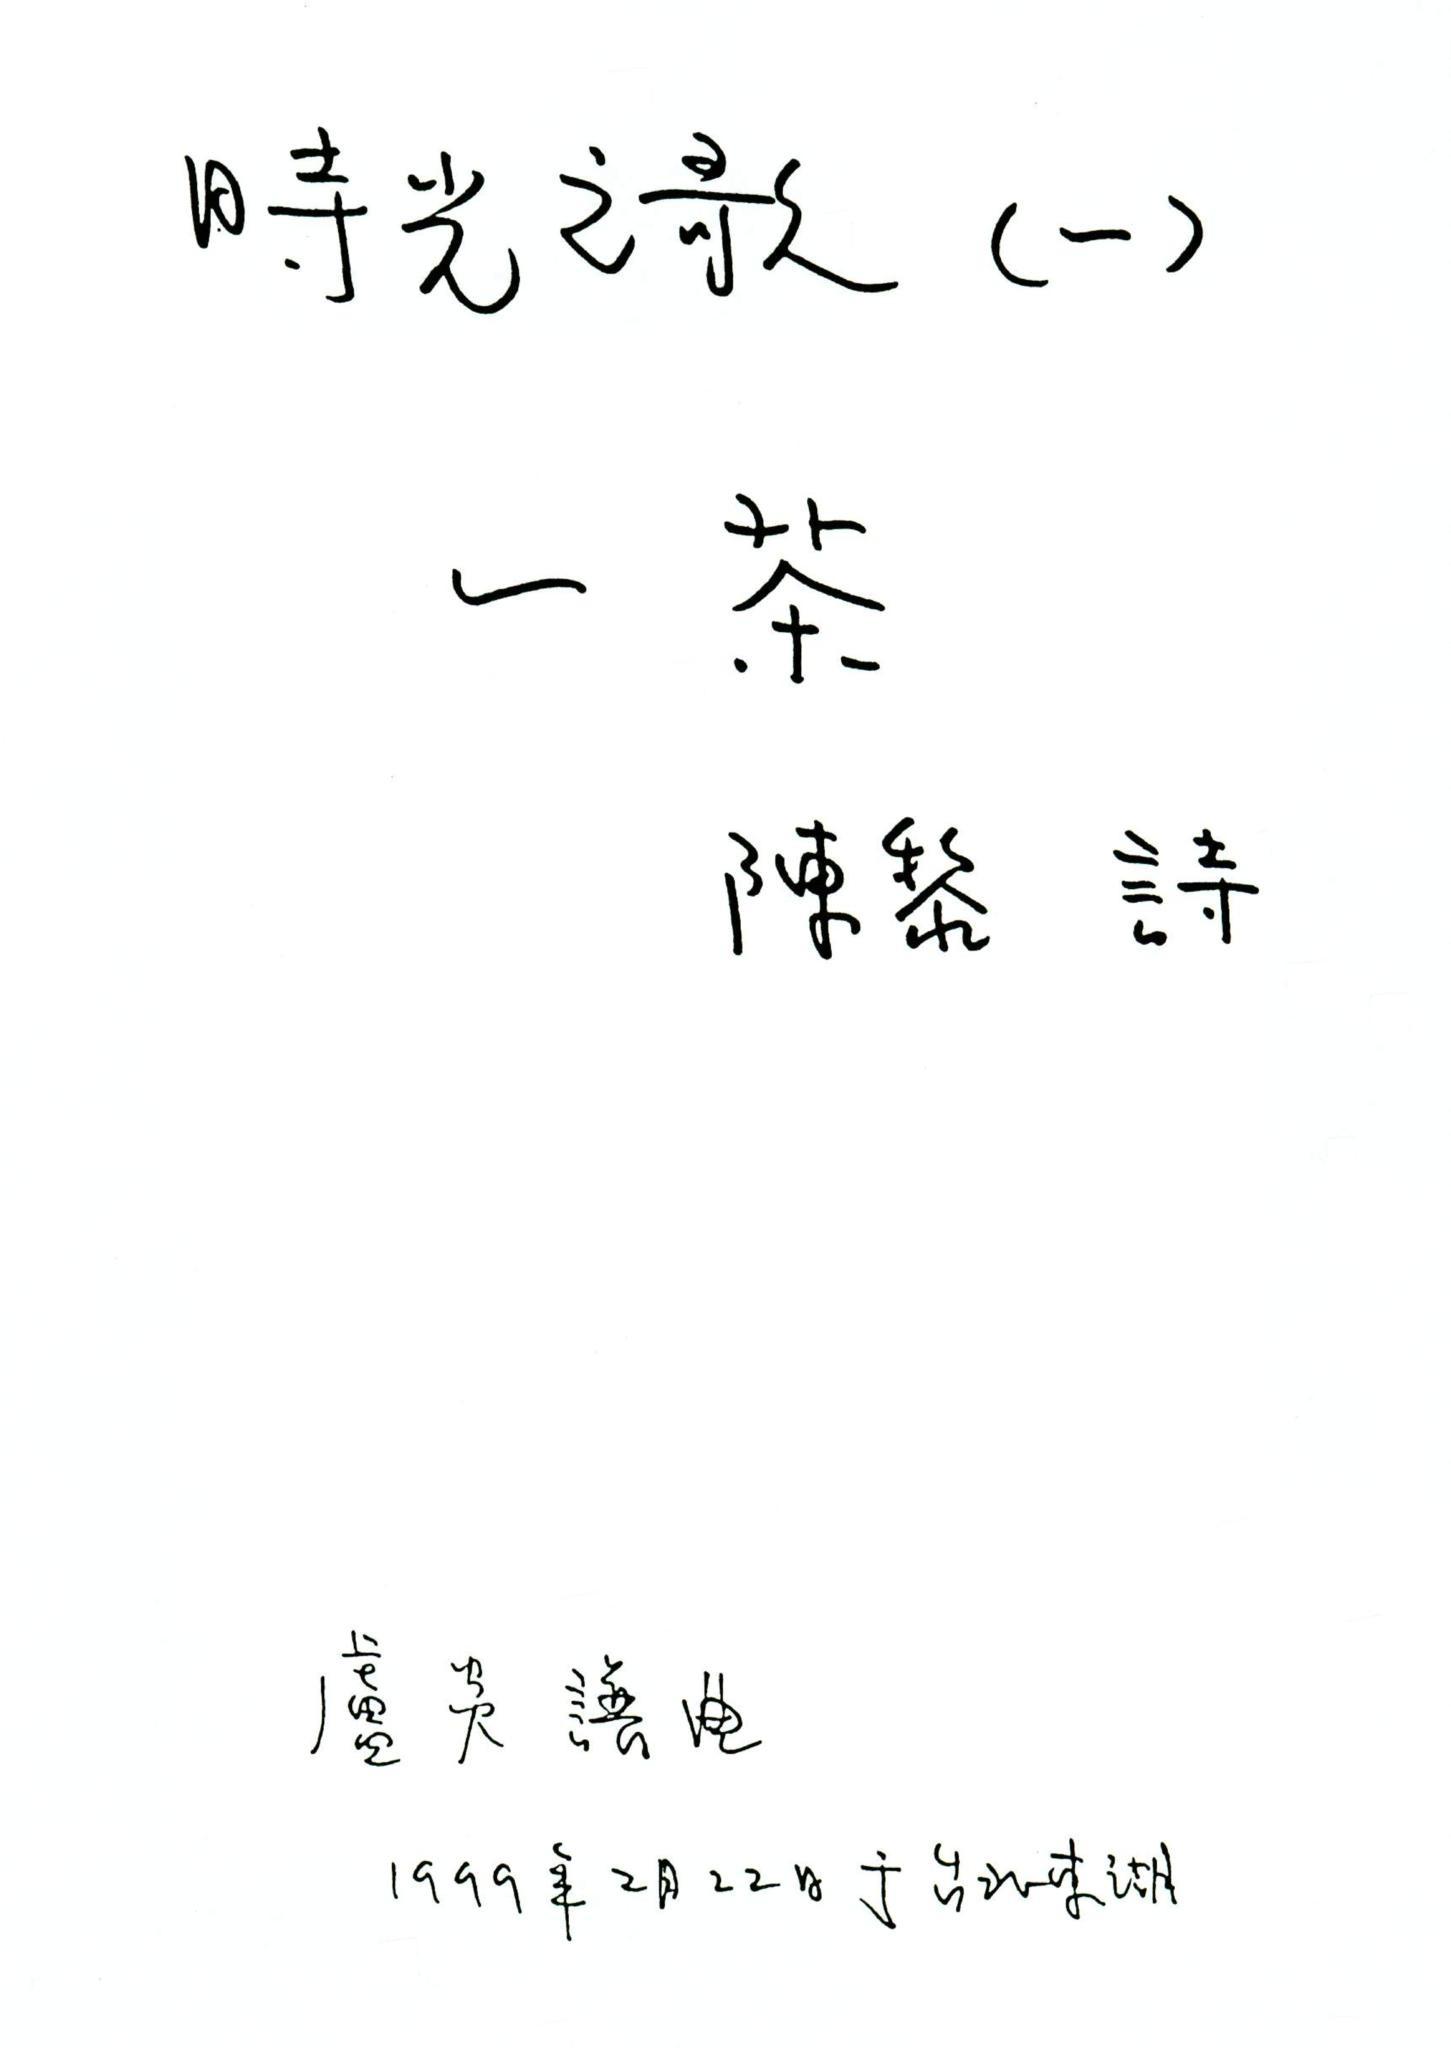 時光之歌（一）
一 茶
陳黎 詩
盧炎譜曲
1999年2月22日于台北東湖